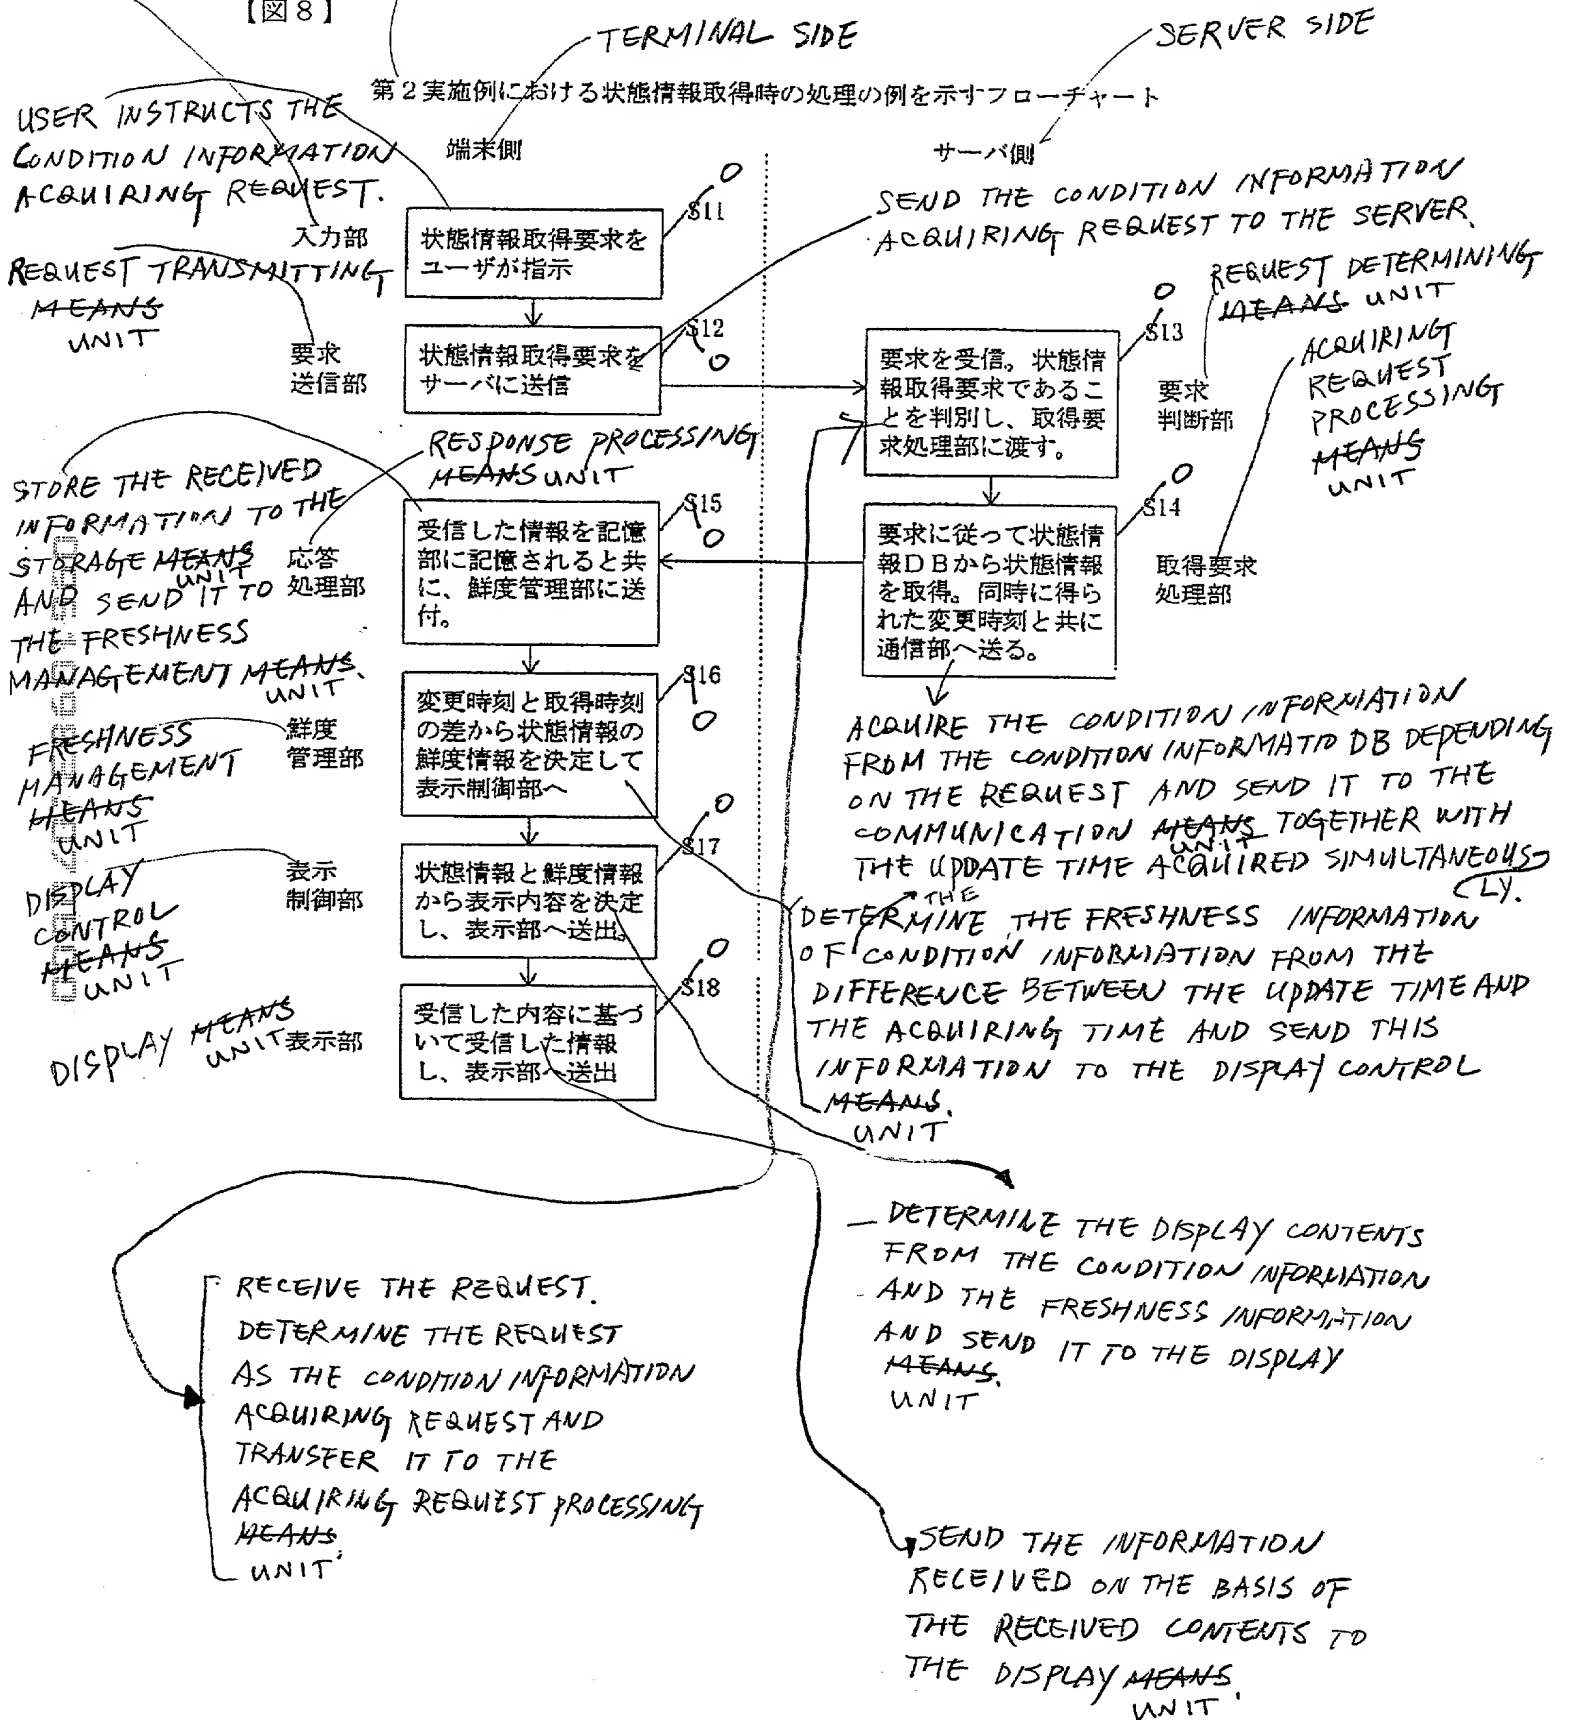 【図8】
TERMINAL SIDE
SERVER SIDE
第2実施例における状態情報取得時の処理の例を示すフローチャート
USER INSTRUCTS THE
CONDITION INFORMATION
ACQUIRING REQUEST.
端末側
サーバ側
S11
入力部
状態情報取得要求を
ユーザが指示
SEND THE CONDITION INFORMATION
ACQUIRING REQUEST TO THE SERVER.
REQUEST TRANSMITTING
MEANS
UNIT
REQUEST DETERMINING
MEANS UNIT
S12
要求
送信部
状態情報取得要求を
サーバに送信
S13
要求を受信。状態情
報取得要求であるこ
とを判別し、取得要
求処理部に渡す。
要求
判断部
ACQUIRING
REQUEST
PROCESSING
MEANS
UNIT
RESPONSE PROCESSING
MEANS UNIT
STORE THE RECEIVED
INFORMATION TO THE
STORAGE MEANS
UNIT
AND SEND IT TO
THE FRESHNESS
MANAGEMENT MEANS.
UNIT
S15
応答
処理部
受信した情報を記憶
部に記憶されると共
に、鮮度管理部に送
付。
S14
要求に従って状態情
報DBから状態情報
を取得。同時に得ら
れた変更時刻と共に
通信部へ送る。
取得要求
処理部
S16
FRESHNESS
MANAGEMENT
MEANS
UNIT
鮮度
管理部
変更時刻と取得時刻
の差から状態情報の
鮮度情報を決定して
表示制御部へ
ACQUIRE THE CONDITION INFORMATION
FROM THE CONDITION INFORMATIO DB DEPENDING
ON THE REQUEST AND SEND IT TO THE
COMMUNICATION MEANS TOGETHER WITH
UNIT
THE UPDATE TIME ACQUIRED SIMULTANEOUS-
LY.
S17
DISPLAY
CONTROL
MEANS
UNIT
表示
制御部
状態情報と鮮度情報
から表示内容を決定
し、表示部へ送出。
THE
DETERMINE THE FRESHNESS INFORMATION
OF CONDITION INFORMATION FROM THE
DIFFERENCE BETWEEN THE UPDATE TIME AND
THE ACQUIRING TIME AND SEND THIS
INFORMATION TO THE DISPLAY CONTROL
MEANS.
UNIT
S18
DISPLAY MEANS
UNIT
表示部
受信した内容に基づ
いて受信した情報
し、表示部へ送出
DETERMINE THE DISPLAY CONTENTS
FROM THE CONDITION INFORMATION
AND THE FRESHNESS INFORMATION
AND SEND IT TO THE DISPLAY
MEANS.
UNIT
RECEIVE THE REQUEST.
DETERMINE THE REQUEST
AS THE CONDITION INFORMATION
ACQUIRING REQUEST AND
TRANSFER IT TO THE
ACQUIRING REQUEST PROCESSING
MEANS.
UNIT
SEND THE INFORMATION
RECEIVED ON THE BASIS OF
THE RECEIVED CONTENTS TO
THE DISPLAY MEANS.
UNIT